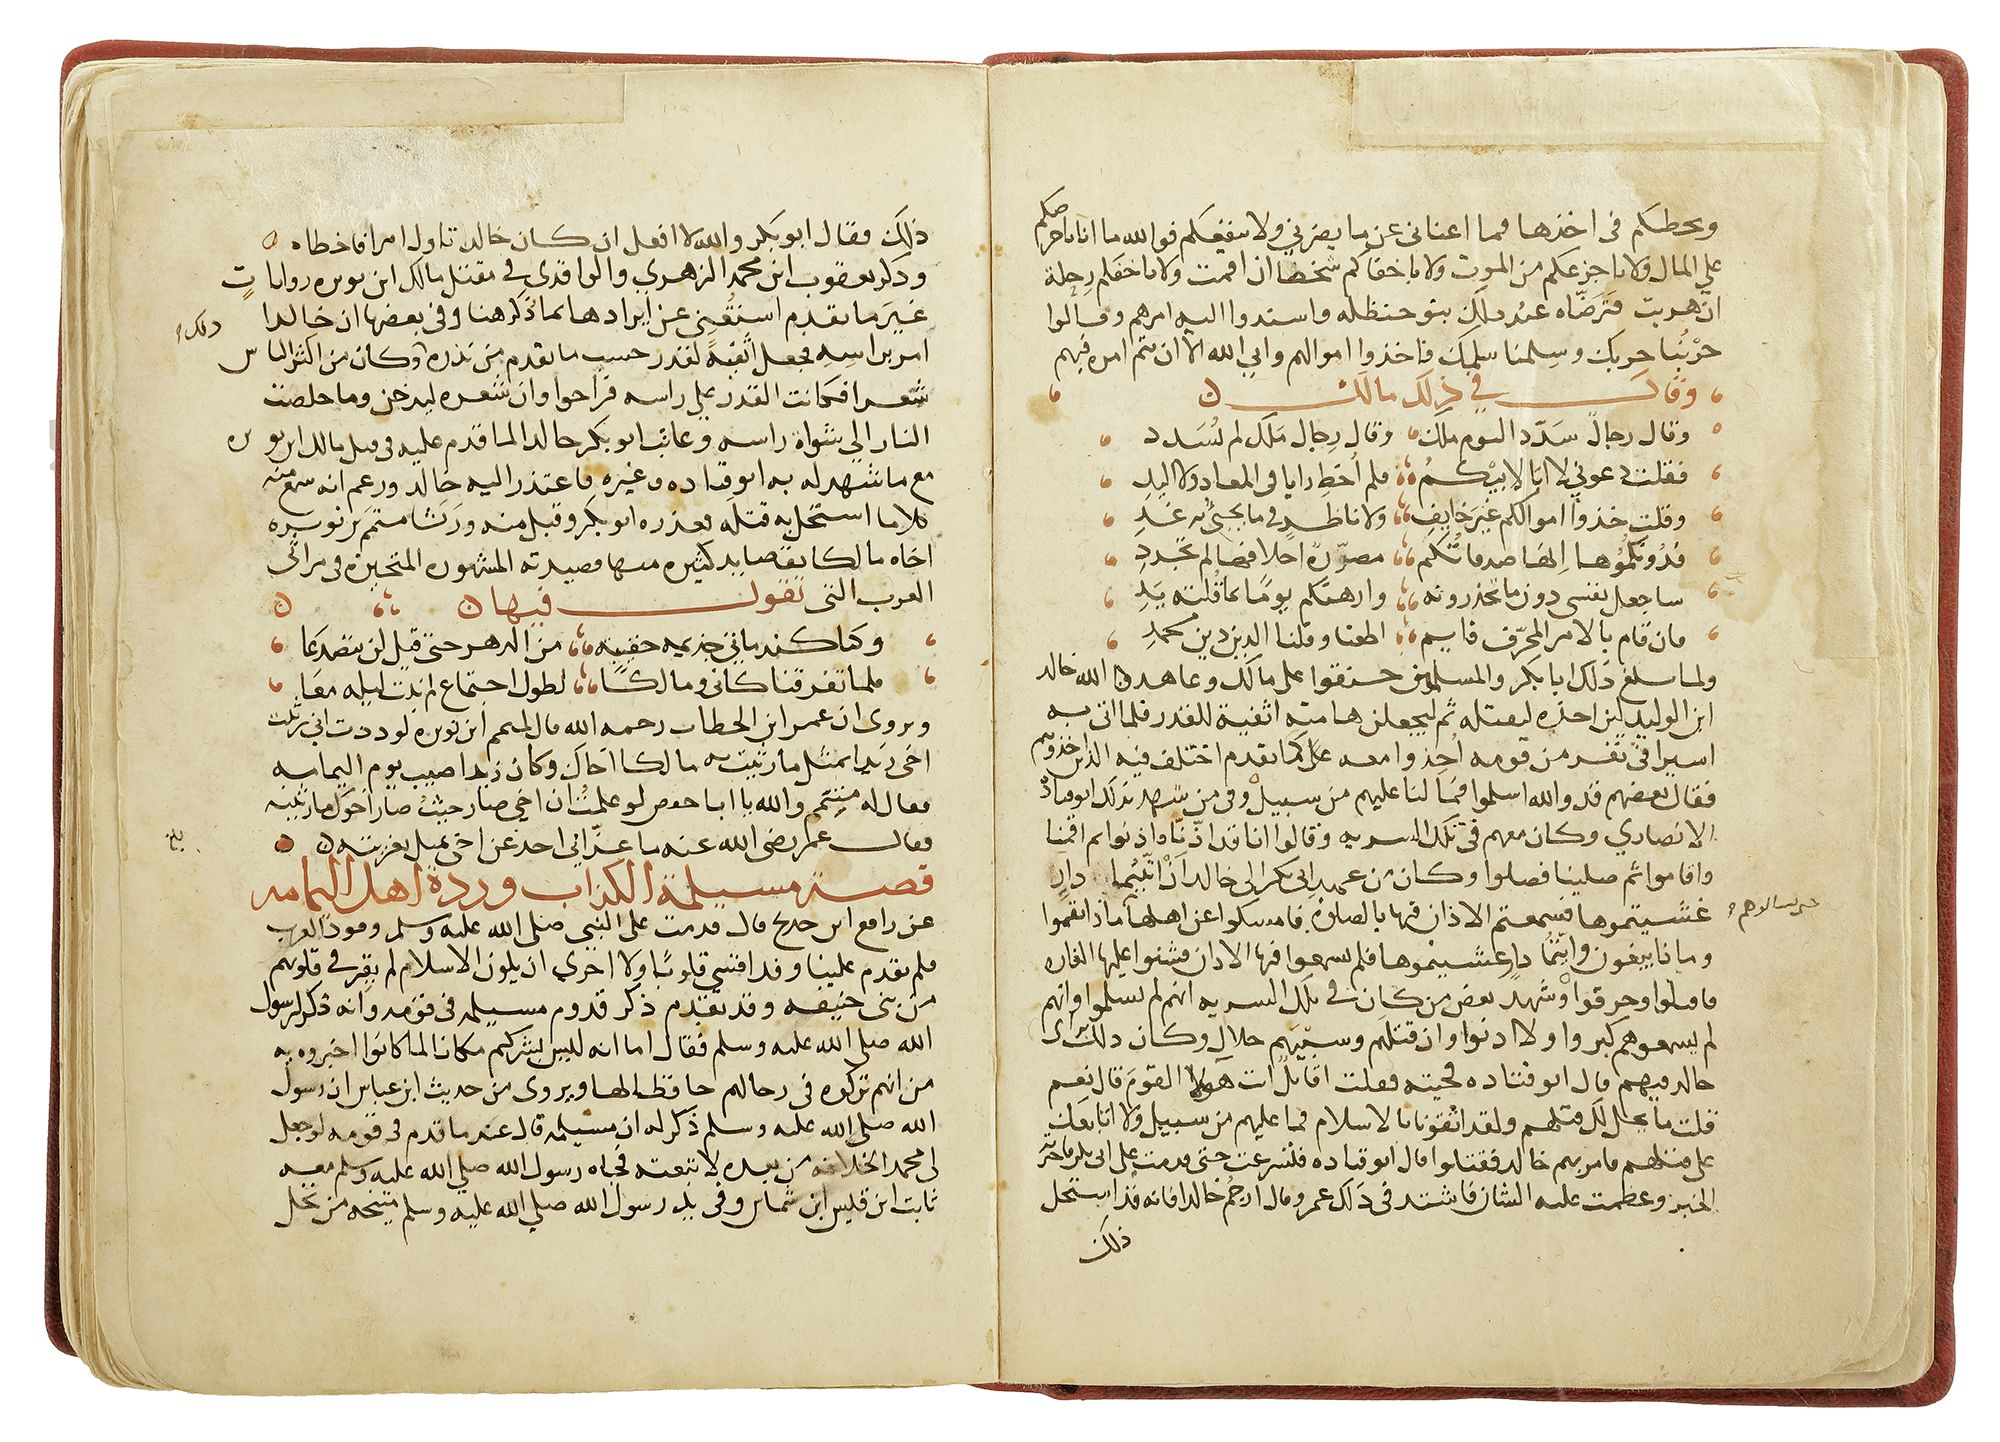 ويحطكم في اخذها فما اعناني عن ما يضرني ولا ينفعكم فوالله ما انا باحرصكم
علي المال ولا باجزعكم من الموت ولا باخفاكم شخصا ان اقمت ولا باخفكم رحلة
ان هربت فترضاه عند ذلك بنو حنظله واسندوا اليه امرهم وقالوا
حربنا حربك وسلمنا سلمك فاخذوا اموالهم وابي الله الا ان يتم امره فيهم
وقال في ذلك مالك
وقال رجال سدد اليوم ملك وقال رجال ملك لم يسدد
فقلت دعوني لا ابا لابيكم فلم اخط رايا في المعاد ولا اليد
وقلت خذوا اموالكم غير خايف ولا ناظر في ما يجئ به غد
فدونكموها انها صدقاتكم مصررة اخلافها لم تجدد
ساجعل نفسي دون ما تحذرونه وارهنكم يوما بما قلته يد
فان قام بالامر المخوف قايم اطعنا وقلنا الدين دين محمد
ولما بلغ ذلك ابا بكر والمسلمين حنقوا على مالك وعاهد الله خالد
ابن الوليد لين اخذه ليقتله ثم ليجعلن هامته اثفية للقدر فلما اتي به
اسيرا في نفر من قومه اخذوا معه على كما تقدم اختلف فيه الذين اخذوهم
فقال بعضهم قد والله اسلموا فما لنا عليهم من سبيل وفي من شهد بذلك ابو قتادة
الانصاري وكان معهم في تلك السريه وقالوا انا قد اذنا واذنوا ثم اقمنا
واقاموا ثم صلينا فصلوا وكان من عهد ابي بكر الى خالد ان ايما دار
غشيتموها فسمعتم الاذان فيها بالصلوة فامسكوا عن اهلها ماذا نقموا
وماذا يبغون وايما دار غشيتموها فلم تسمعوا فيها الاذان فشنوا عليها الغاره
فاقتلوا وحرقوا وشهد بعض من كان في تلك السريه انهم لم يسلموا وانهم
لم يسمعوهم كبروا ولا اذنوا وان قتلهم وسبيهم حلال وكان ذلك راى
خالد فيهم قال ابو قتاده فجيته فقلت اقاتل انت هولا القوم قال نعم
قلت ما يحل لك قتلهم ولقد اتقونا بالاسلام فما عليهم من سبيل ولا اتابعك
على قتلهم فامر بهم خالد فقتلوا قال ابو قتاده فتسرعت حتى قدمت على ابي بكر فاخبرته
الخبر وعظمت عليه الشان فاشتد في ذلك عمر وقال ارجم خالدا فانه قد استحل
ذلك
حتى تسالوهم
ذلك فقال ابو بكر والله لا افعل ان كان خالد تاول امرا فاخطاه
وذكر يعقوب ابن محمد الزهري والواقدي في مقتل مالك ابن نويره روايات
غير ما تقدم استغني عن ايرادها بما ذكر هنا وفي بعضها ان خالدا
امر براسه فجعل اثفية لقدر حسب ما تقدم من نذره وكان من اكثر الناس
شعرا فكانت القدر على راسه فراحوا وان شعره ليدخن وما خلصت
النار الى شواة راسه وعاتب ابو بكر خالدا لما قدم عليه في قتل مالك ابن نويره
مع ما شهد له به ابو قتاده وغيره فاعتذر اليه خالد وزعم انه سمع منه
كلاما استحل به قتله فعذره ابو بكر وقبل منه ورثا متمم بن نويره
اخاه مالكا بقصايد كثيره منها قصيدته المشهوره المتخيرة في مراثي
العرب التي يقول فيها
وكنا كندماني جذيمه حقبة من الدهر حتى قيل لن يتصدعا
فلما تفرقنا كاني ومالكا لطول اجتماع لم نبت ليله معا
ويروى ان عمر ابن الخطاب رحمه الله قال لمتمم ابن نويره لوددت اني رثيت
اخي زيدا بمثل ما رثيت به مالكا اخاك وكان زيد اصيب يوم اليمامه
فقال له متمم والله يا ابا حفص لو علمت ان اخي صار حيث صار اخوك ما رثيته
فقال عمر رضي الله عنه ما عزاني احد عن اخي بمثل تعزيته
قصة مسيلمة الكذاب وردة اهل اليمامه
عن رافع ابن خديج قال قدمت على النبي صلى الله عليه وسلم وفود العرب
فلم يقدم علينا وفد اقسي قلوبا ولا احري ان يكون الاسلام لم يقر في قلوبهم
من بني حنيفه وقد تقدم ذكر قدوم مسيلمه في قومه وانه ذكر لرسول
الله صلى الله عليه وسلم فقال اما انه ليس بشركم مكانا لما كانوا اخبروه به
من انهم تركوه في رحالهم حافظا لها ويروى من حديث ابن عباس ان رسول
الله صلى الله عليه وسلم ذكر له ان مسيلمه قال عند ما قدم في قومه لو جعل
لي محمد الخلافه من بعده لا تبعته فجاه رسول الله صلى الله عليه وسلم معه
ثابت ابن قيس ابن شماس وفي يد رسول الله صلى الله عليه وسلم ميتخه من نخل
ذلك
بلغ